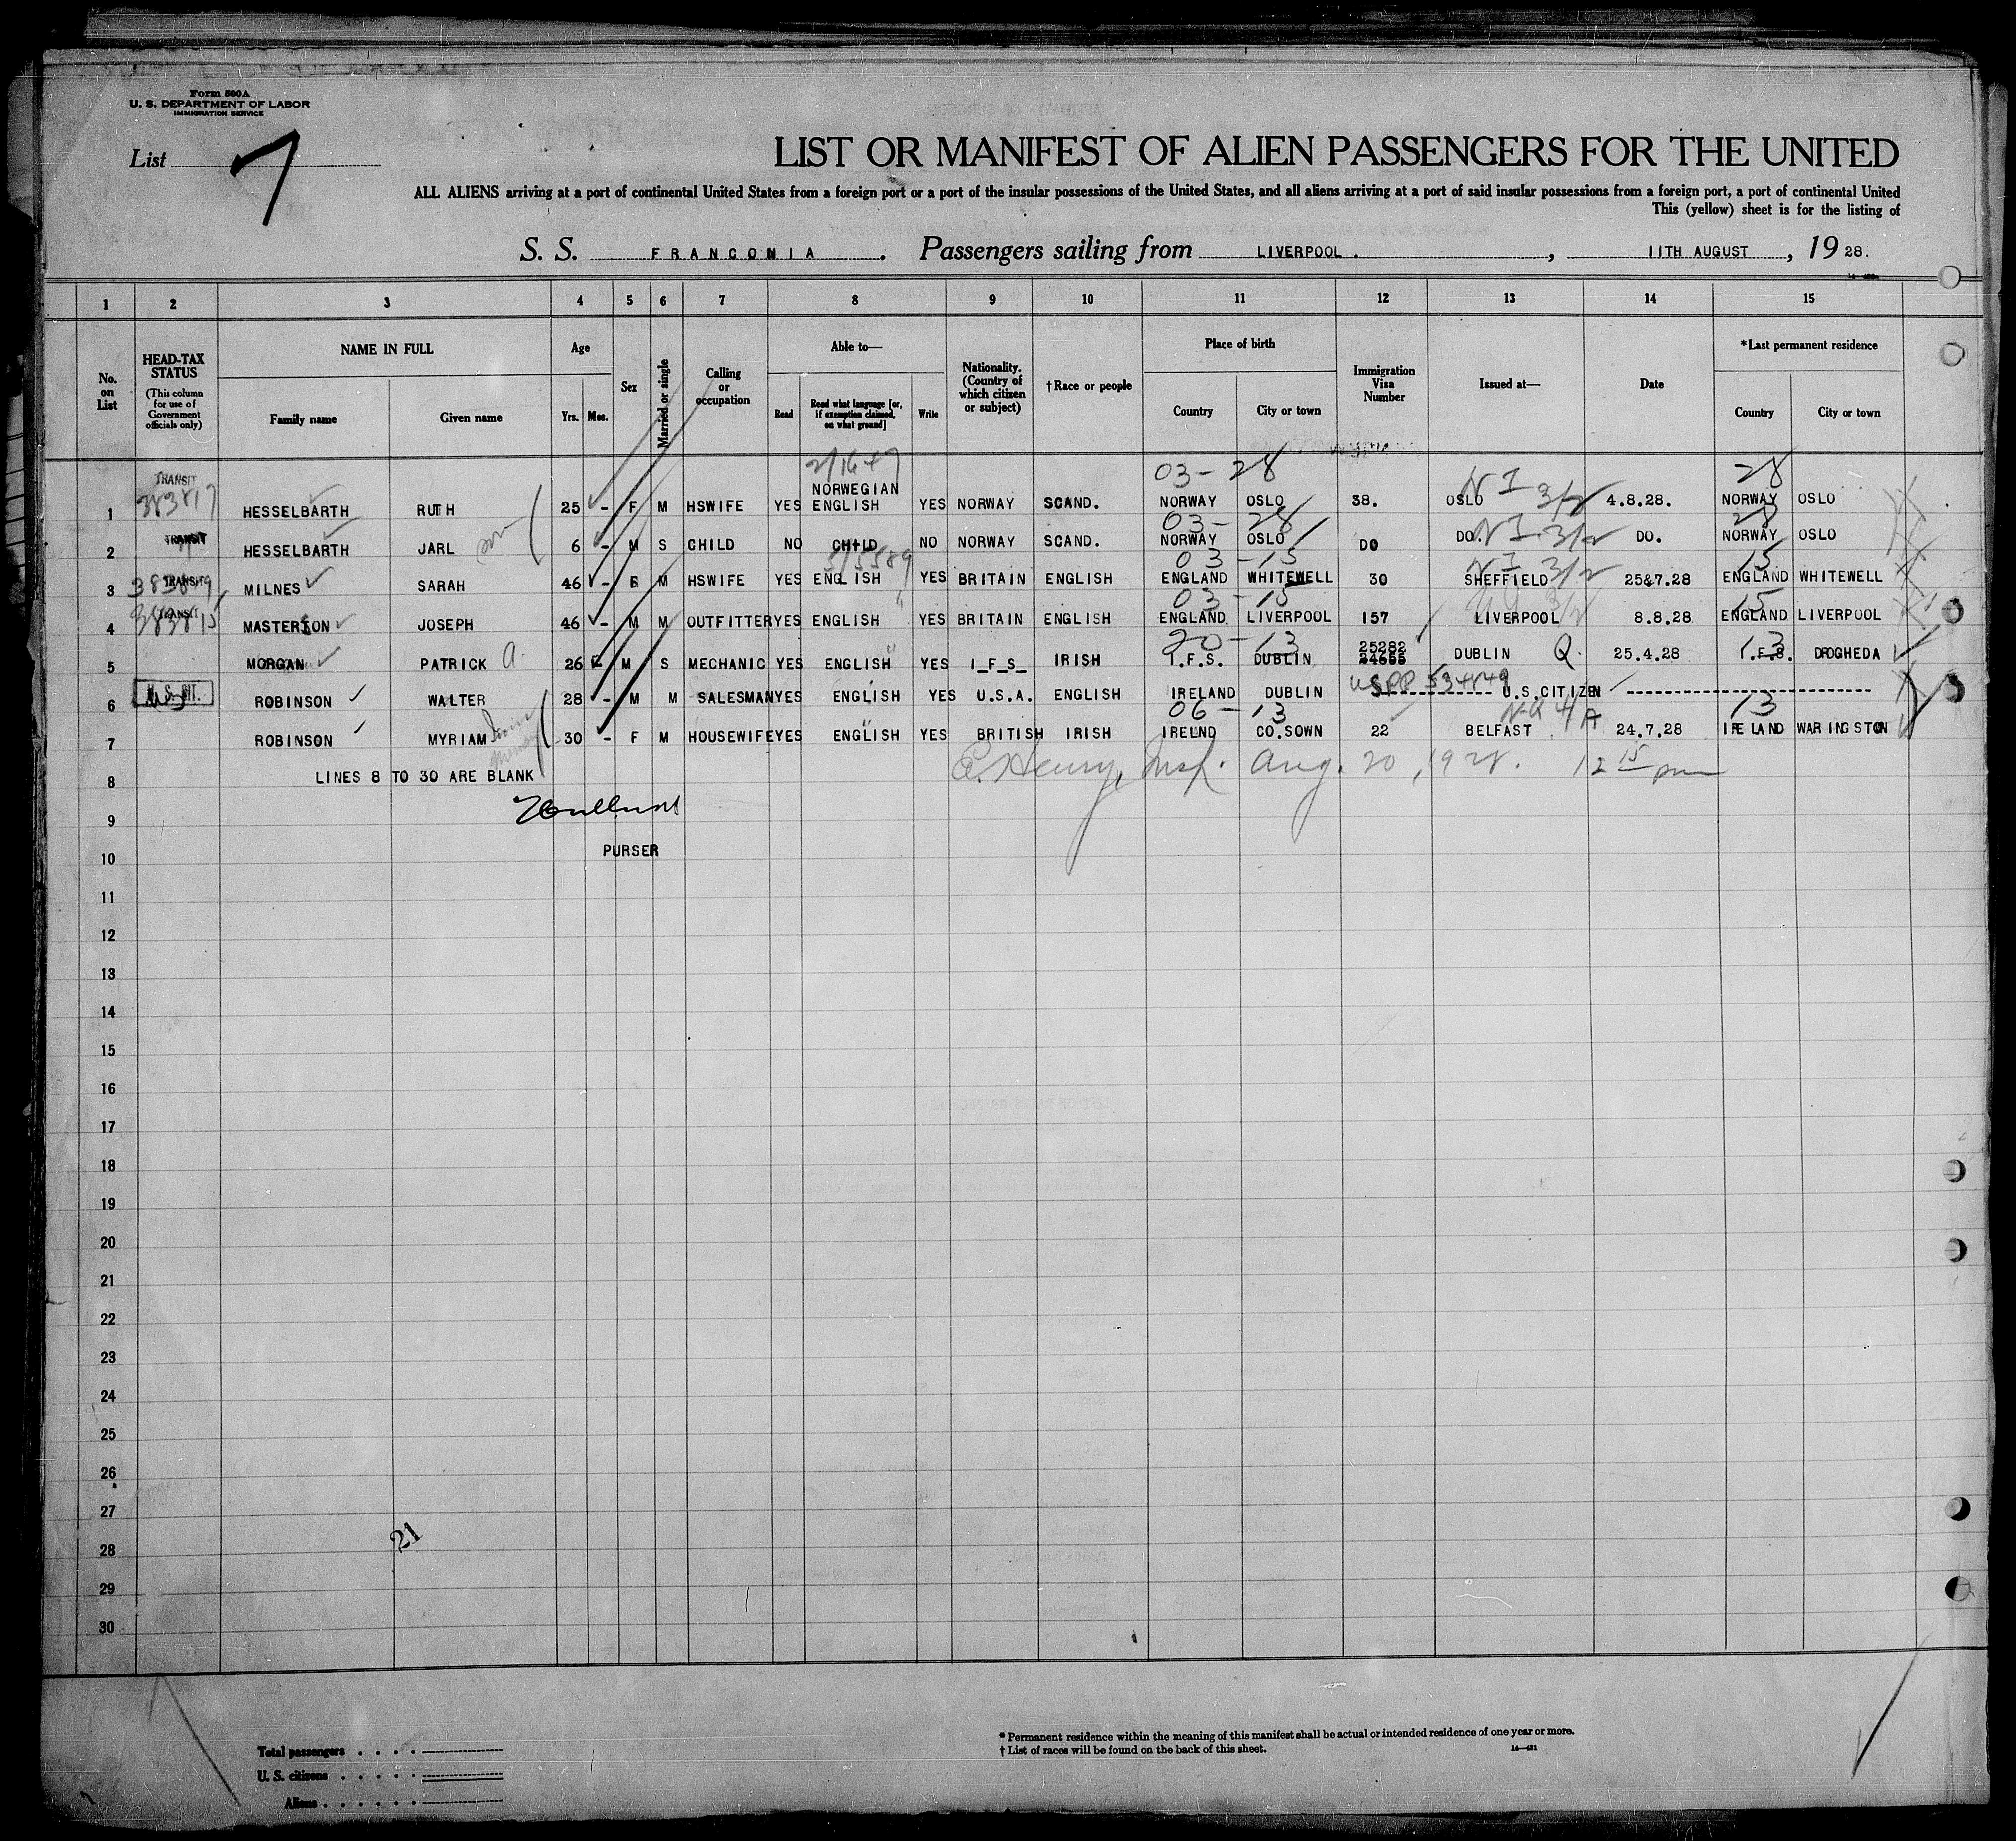 Form 500A
U. S. DEPARTMENT OF LABOR
IMMIGRATION SERVICE
List 7
LIST OR MANIFEST OF ALIEN PASSENGERS FOR THE UNITED
ALL ALIENS arriving at a port of continental United States from a foreign port or a port of the insular possessions of the United States, and all aliens arriving at a port of said insular possessions from a foreign port, a port of continental United
This (yellow) sheet is for the listing of
S. S. FRANCONIA . Passengers sailing from LIVERPOOL. , 11TH AUGUST , 19 28.
1 2 3 4 5 6 7 8 9 10 11 12 13 14 15
No. on List
HEAD-TAX STATUS
(This column for use of Government officials only)
NAME IN FULL
Family name
Given name
Age
Yrs.
Mos.
Sex
Married or single
Calling or occupation
Able to—
Read
Read what language [or, if exemption claimed, on what ground]
Write
Nationality. (Country of which citizen or subject)
†Race or people
Place of birth
Country
City or town
Immigration Visa Number
Issued at—
Date
*Last permanent residence
Country
City or town
03-28 28
1 TRANSIT HESSELBARTH RUTH 25 - F M HSWIFE YES NORWEGIAN ENGLISH YES NORWAY SCAND. NORWAY OSLO 38. OSLO 4.8.28. NORWAY OSLO
03-28 28
2 TRANSIT HESSELBARTH JARL son 6 - M S CHILD NO CHILD NO NORWAY SCAND. NORWAY OSLO DO DO. DO. NORWAY OSLO
03-15 15
3 TRANSIT MILNES SARAH 46 - F M HSWIFE YES ENGLISH YES BRITAIN ENGLISH ENGLAND WHITEWELL 30 SHEFFIELD 25&7.28 ENGLAND WHITEWELL
03-15 15
4 TRANSIT MASTERSON JOSEPH 46 - M M OUTFITTER YES ENGLISH YES BRITAIN ENGLISH ENGLAND LIVERPOOL 157 LIVERPOOL 8.8.28 ENGLAND LIVERPOOL
20-13 13
5 MORGAN PATRICK 26 - M S MECHANIC YES ENGLISH YES I_F_S_ IRISH I.F.S. DUBLIN 25282 DUBLIN Q. 25.4.28 I.F.S. DROGHEDA
6 U.S. CIT. ROBINSON WALTER 28 - M M SALESMAN YES ENGLISH YES U.S.A. ENGLISH IRELAND DUBLIN U.S.CITIZEN
06-13 13
7 ROBINSON MYRIAM 30 - F M HOUSEWIFE YES ENGLISH YES BRITISH IRISH IRELND CO.SOWN 22 BELFAST 24.7.28 IRELAND WARINGSTON
8 LINES 8 TO 30 ARE BLANK E. Henry, Insp. Aug. 20, 1928. 12 15 pm
9
10 PURSER
11
12
13
14
15
16
17
18
19
20
21
22
23
24
25
26
27
21
28
29
30
Total passengers
U. S. citizens
Aliens
* Permanent residence within the meaning of this manifest shall be actual or intended residence of one year or more.
† List of races will be found on the back of this sheet.
14—421